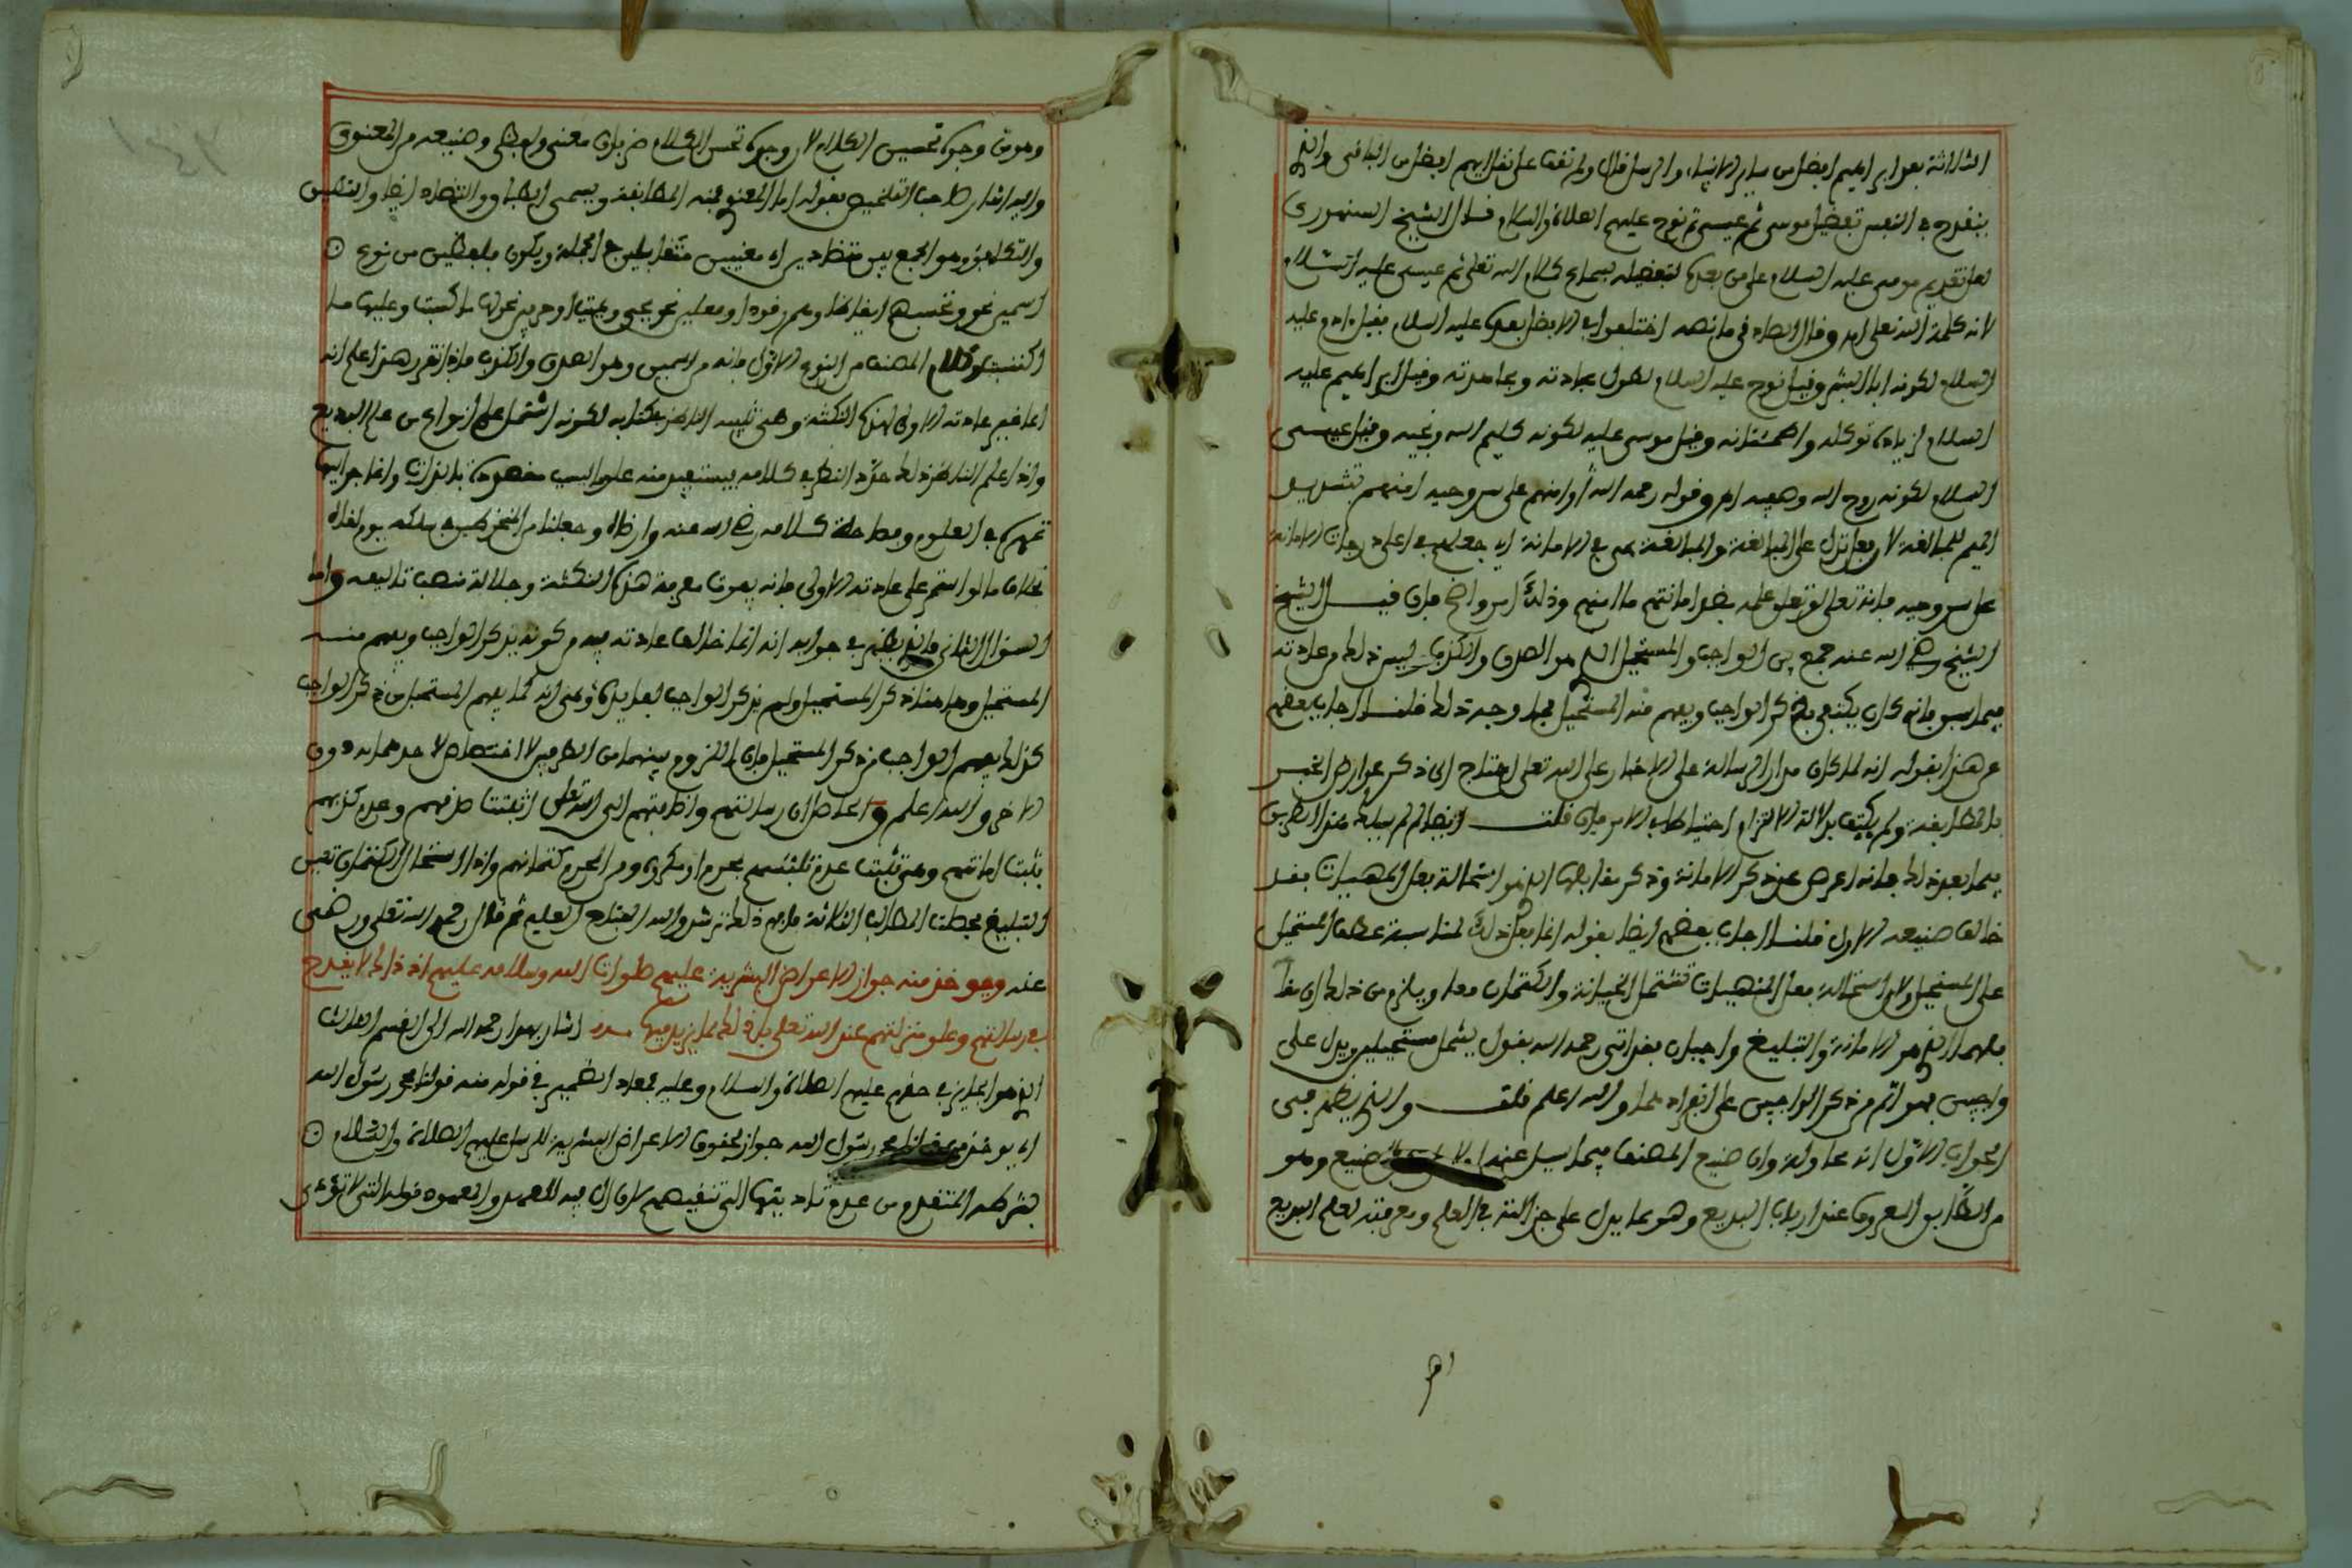 الثلاثة بعد ابراهيم افضل من ساير الانبياء والرسل قال ولم نقف على نقل ايهم افضل من الباقى والذى
ينقدح فى النفس تفضيل موسى ثم عيسى ثم نوح عليهم الصلاة والسلام قال الشيخ السنهورى
لعل تقديم موسى عليه السلام على من بعده لتفضيله بسماع كلام الله تعلى ثم عيسى عليه السلام
لانه كلمة الله تعلى اه وقال الصاد فى ما نصه اختلفوا فى الافضل بعده عليه السلام فقيل ءادم عليه
السلام لكونه ابا البشر وقيل نوح عليه السلام لطول عبادته ومجاهدته وقيل ابراهيم عليه
السلام لزيادة توكله واطمئنانه وقيل موسى عليه لكونه كليم الله ونجيه وقيل عيسى
السلام لكونه روح الله وصفيه اه وقوله رحمه الله أو امنهم على سر وحيه امنهم بتشديد
الميم للمبالغة لان فعل تدل على المبالغة والمبالغة هى فى الامانة اى جعلهم فى اعلى درجات الامانة
على سر وحيه فانه تعلى لو تعلق علمه بضد امانتهم ما امنهم وذلك امر واضح فان قيل الشيخ
الشيخ رضى الله عنه جمع بين الواجب والمستحيل الذى هو الصدق والكذب ليس ذلك من عادته
فيما سبق فانه كان يكتفى بذكر الواجب ويفهم منه المستحيل فما وجه ذلك قلنا اجاب بعضهم
عن هذا بقوله انه لما كان مدار الرسالة على الاخبار على الله تعلى احتاج الى ذكر عوارض الخبر
بالمطابقة ولم يكتف بدلالة الالتزام احتياطا للامر فان قلت ايضا لم لم يسلك هذا الطريق
فيما بعد ذلك فانه اعرض عن ذكر الامانة وذكر مقابلها الذى هو استحالة فعل المنهيات فقد
خالف صنيعه الاول قلنا اجاب بعضهم ايضا بقوله انما فعل ذلك لمناسبة عطف المستحيل
على المستحيل ولان استحالة فعل المنهيات تشتمل الخيانة والكتمان معا ويلزم من ذلك ان مقا
بلهما الذى هو الامانة والتبليغ واجبان فقد اتى رحمه الله بقول يشمل مستحيلين ويدل على
واجبين فهو اتم من ذكر الواجبين على انفراد هما والله اعلم قلت والذى يظهر فى
الجواب الاول ان محاولة وان صنيع المصنف فيما سبل عنه صنيع وهو
من الطباق المعروف عند ارباب البديع وهو مما يدل على جزالته فى العلم ومعرفته لعلم البديع
اه
وهو من وجوه تحسين الكلام لان وجوه تحسين الكلام ضربان معنوى ولفظى وصنيعه من المعنوى
واليه اشار صاحب التلخيص بقوله اما المعنوى فمنه المطابقة ويسمى الطباق والتضاد ايضا والتطبيق
والتكافؤ وهو الجمع بين متضادين اى معنيين متقابلين فى الجملة ويكون بلفظين من نوع ⊙
اسمين نحو وتحسبهم ايقاظا وهم رقود او فعلين نحو يحيى ويميت او حرفين نحو لها ما كسبت وعليها ما
اكتسبت وكلام المصنف من النوع الاول فانه من اسمين وهو الصدق والكذب فاذا تقرر هذا علم انه
انما غير عادته الاولى لهذه النكتة وهى تنبيه الناظر فى كتابه لكونه اشتمل على انواع من علم البديع
واذا علم الناظر ذلك جدد النظر فى كلامه يستفيد منه علوما ليست مقصودة بالذات وانما جر اليها
تمهره فى العلوم وفصاحة كلامه رضى الله عنه وارضاه وجعلنا من المنخرطين فى سلكه يوم لقاه
بخلاف ما لو استمر على عادته الاولى فانه يفوت معرفة هذه النكتة وجلالة منصب تاليفه واما
السؤال الثانى فالذى يظهر فى جوابه انه انما خالف عادته فيه من كونه يذكر الواجب ويفهم منه
المستحيل وها هنا ذكر المستحيل ولم يذكر الواجب لفائدة وهى انه كما يفهم المستحيل من ذكر الواجب
كذلك يفهم الواجب من ذكر المستحيل فان اللزوم بينهما من الطرفين لا اختصاص لاحدهما به دون
الاخر والله اعلم واعلم ان رسالتهم واضافتهم الى الله تعلى اثبتت صدقهم وعدم كذبهم
فثبت امانتهم ومتى ثبتت عدم تلبسهم بمحرم او مكروه ومن المحرم كتمانهم واذا استحال الكتمان تعين
التبليغ فحصلت المطالب الثلاثة فافهم ذلك ترشد والله الفتاح العليم ثم قال رحمه الله تعلى ورضى
عنه ويوخذ منه جواز الاعراض البشرية عليهم صلوات الله وسلامه عليهم اذ ذاك لا يقدح
فى رسالتهم وعلو منزلتهم عند الله تعلى بل ذلك مما يزيد فيها اشار بهذا رحمه الله الى القسم الثالث
الذى هو الجايز فى حقهم عليهم الصلاة والسلام وعليه فمعاد الضمير فى قوله منه قولنا محمد رسول الله
اى يوخذ من قولنا محمد رسول الله جواز لحوق الاعراض البشرية للرسل عليهم الصلاة والسلام ⊙
بشرطه المتقدم من عدم تاديتها الى تنقيصهم لان ال فيه للعهد والمعهود قوله التى لا تؤدى